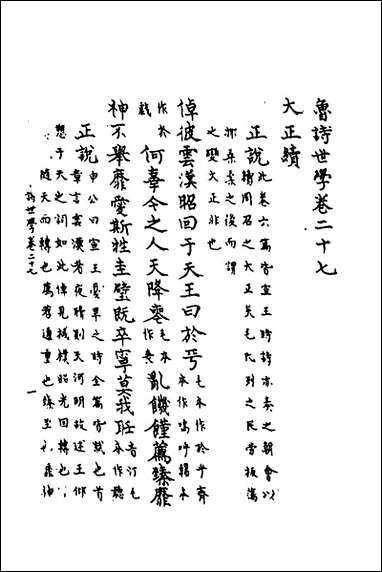 魯詩世學卷二十七
大正續
正說此卷六篇皆宣王時詩亦奏之朝會以
續周召之大正矣毛氏列之民勞板蕩
抑桑柔之後而謂
之變大正非也
倬彼雲漢昭回于天王曰於乎毛本作於乎齊
本作嗚呼韓本
作於
戲何辜今之人天降喪毛本
作喪亂饑饉薦臻靡
神不舉靡愛斯牲圭璧既卒寧莫我聽音汀毛
本作聽
正說申公曰宣王憂旱之時全篇皆賦也首
章言雲漢者夜晴則天河明故述王仰
愬于天之訓如此倬見棫樸昭光回轉也
隨天而轉也薦荐通重也臻至也靡神
詩世學卷二十七
一